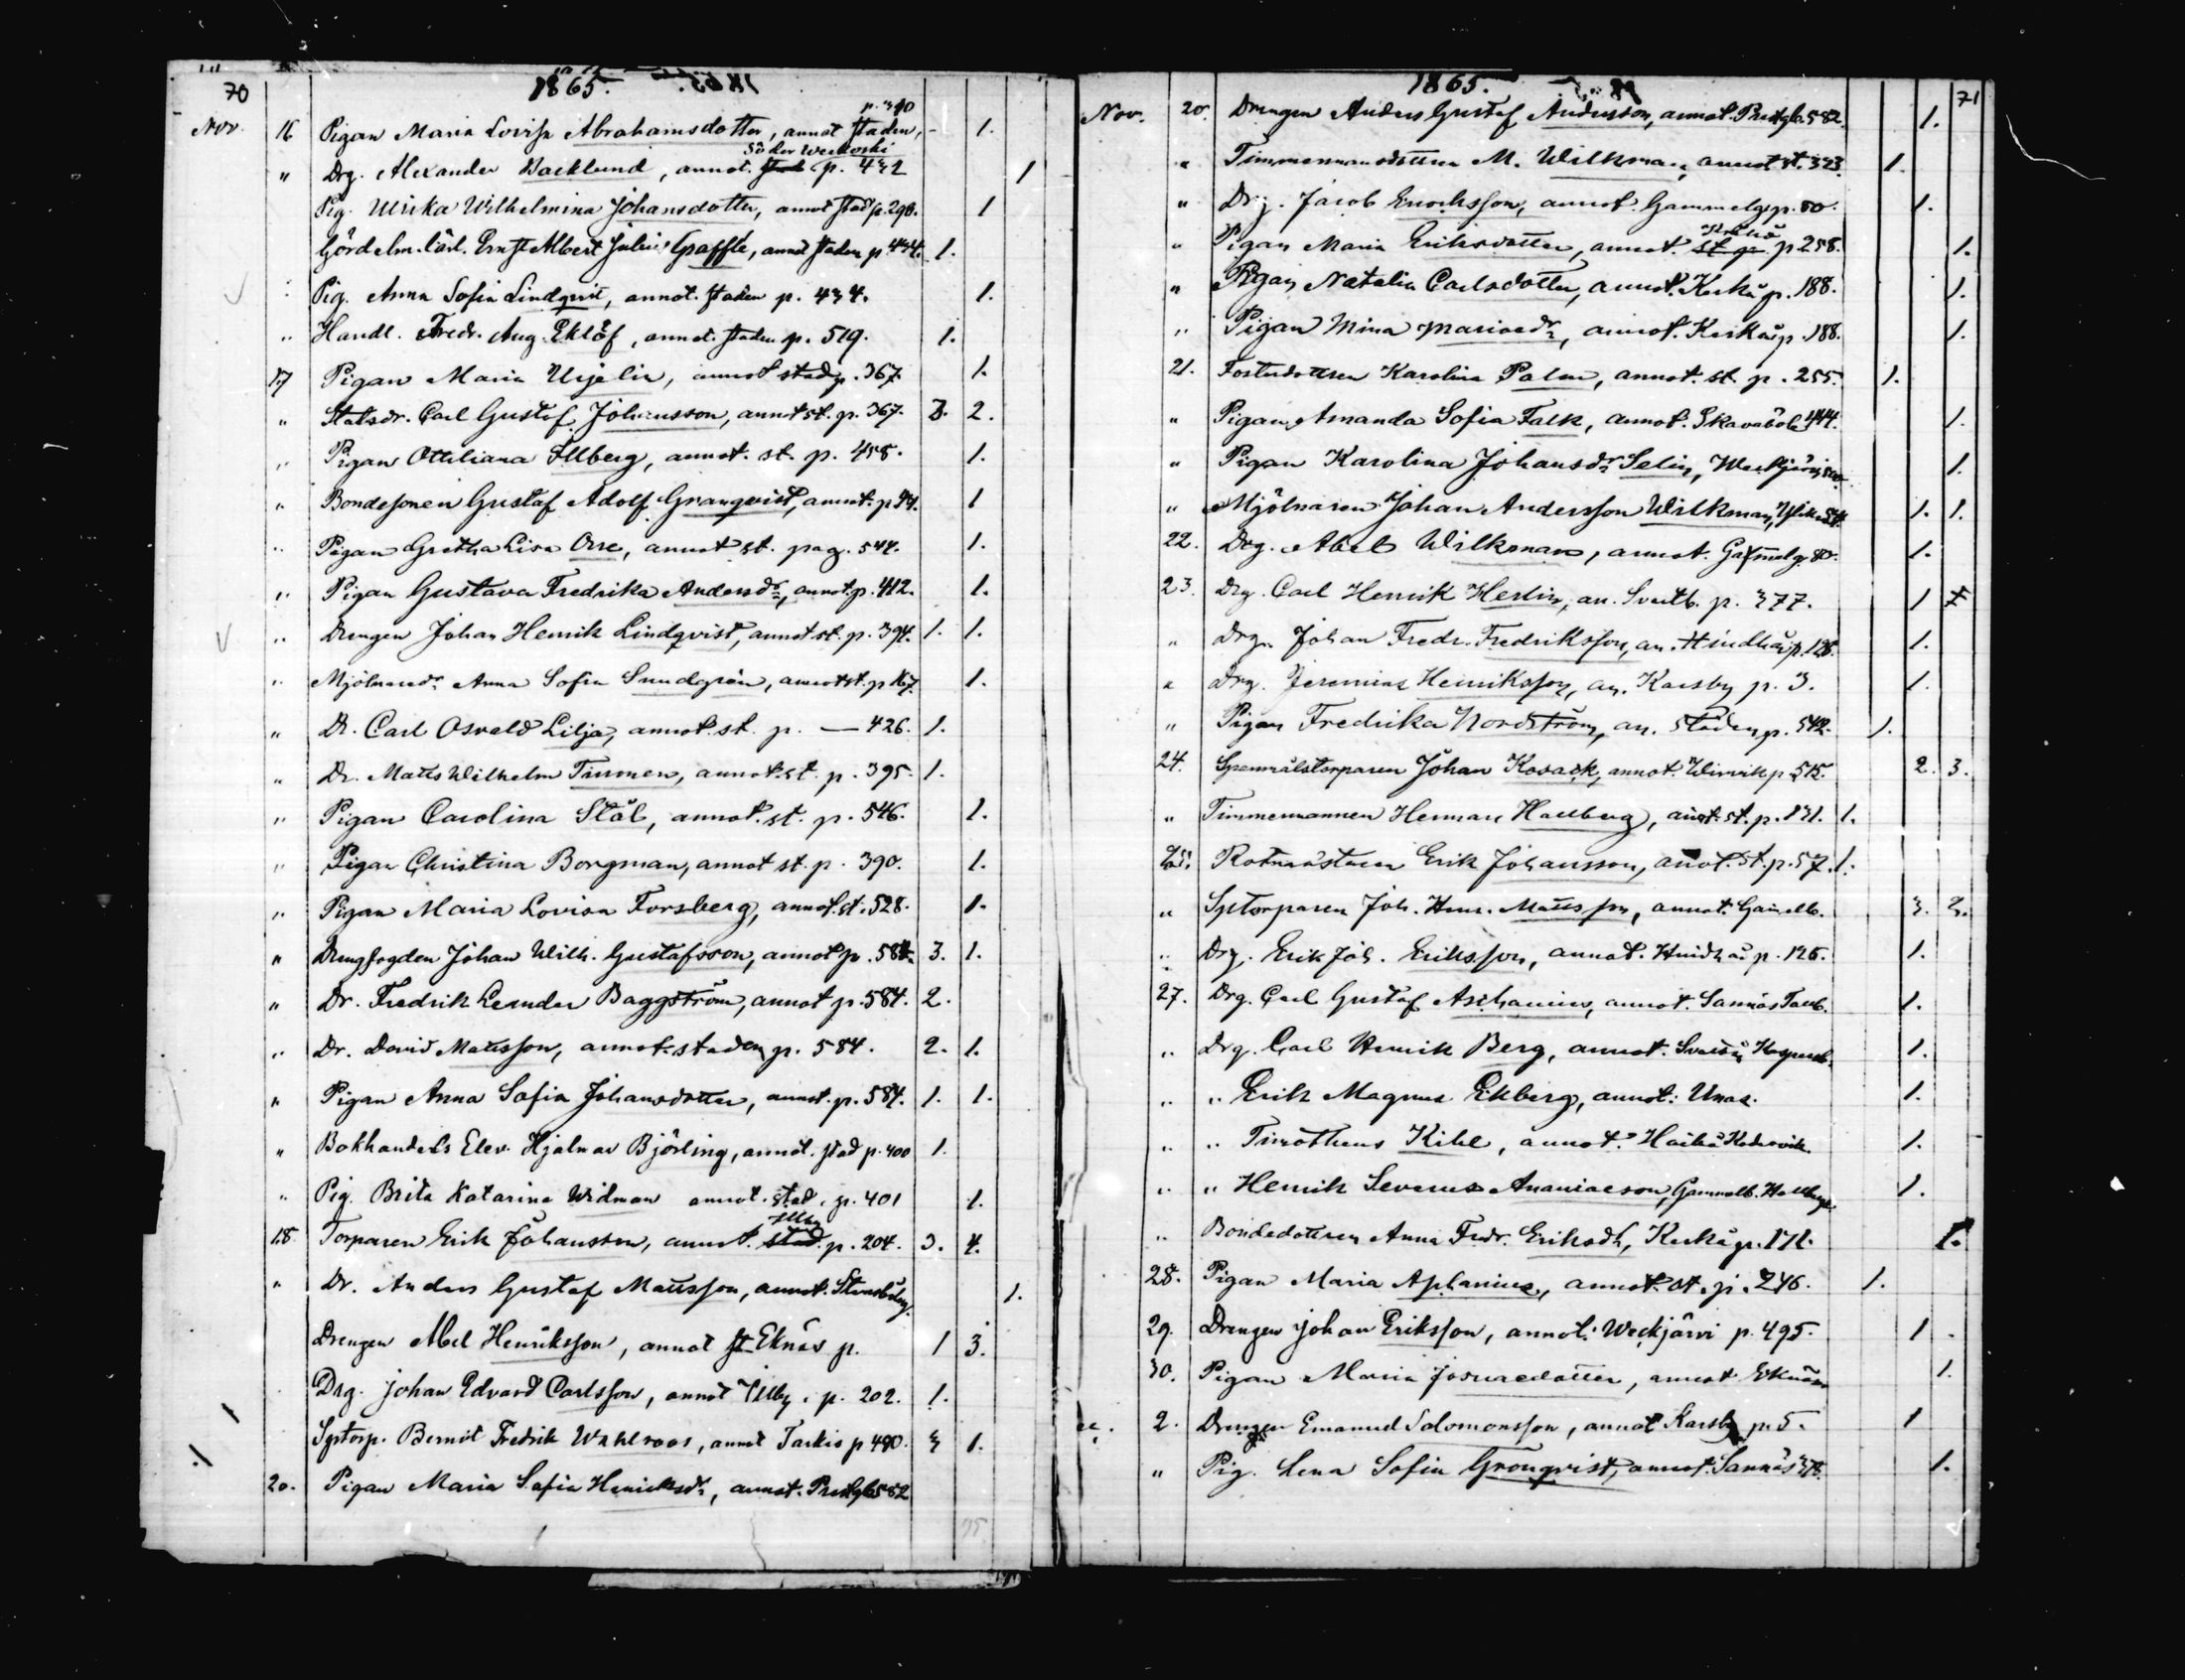 70
1865.
Nov. 16 Pigan Maria Lovisa Abrahamsdotter, annot staden, p. 390 - 1.
" Drg. Alexander Backlund, annot. Söder Weckoski p. 432 1
Pig. Ulrika Wilhelmina Johansdotter, annot stad p. 298. 1
Gördelm. lärl. Ernst Albert Julius Graffte, annot staden p. 434. 1.
" Pig. Anna Sofia Lindqvist, annot. staden p. 434. 1.
" Handl. Fredr. Aug. Eklöf, annot. staden p. 519. 1.
17 Pigan Maria Urjelin, annot stad p. 367. 1.
" Statsdr. Carl Gustaf Johansson, annot st. p. 367. 3. 2.
" Pigan Ottiliana Illberg, annot. st. p. 458. 1.
" Bondesonen Gustaf Adolf Granqvist, annot. p. 1
" Pigan Gretha Lisa Orre, annot st. pag. 544. 1.
" Pigan Gustava Fredrika Andersdr, annot. p. 412. 1.
" Drengen Johan Henrik Lindqvist, annot st. p. 394. 1. 1.
" Mjölnaredr Anna Sofia Sundgrén, annot st. p. 167. 1.
" Dr. Carl Osvald Lilja, annot. st. p. — 426. 1.
" Dr. Matts Wilhelm Timmen, annot. st. p. 395. 1.
" Pigan Carolina Stål, annot. st. p. 546. 1.
" Pigan Christina Borgman, annot st. p. 390. 1.
" Pigan Maria Lovisa Forsberg, annot. st. 528. 1.
" Drengfogden Johan Wilh. Gustafsson, annot p. 584. 3. 1.
" Dr. Fredrik Leander Baggström, annot p. 584. 2.
" Dr. David Matsson, annot. staden p. 584. 2. 1.
" Pigan Anna Sofia Johansdotter, annot. p. 584. 1. 1.
" Bokhandels Elev. Hjalmar Björling, annot. stad p. 400 1.
" Pig. Brita Katarina Widman annot. stad. p. 401 1.
18. Torparen Erik Johansson, annot. Illby p. 204. 3. 4.
" Dr. Anders Gustaf Mattsson, annot. 1.
Drengen Abel Henriksson, annot st Eknäs p. 1 3.
Drg. Johan Edvard Carlsson, annot Illby. p. 202. 1.
Sptorp. Berndt Fredrik Wahlroos, annot Tarkis p 480. 3 1.
20. Pigan Maria Sofia Henriksdr, annot. Prestgb 582
71
1865.
Nov. 20. Drengen Anders Gustaf Andersson, annot. Prestgb. 582. 1.
" Timmermansdottren M. Wilkman, annot st. 323. 1.
" Drg. Jacob Enochsson, annot. Gammelg p. 80. 1.
" Pigan Maria Eriksdotter, annot. p 258. 1.
" Pigan Natalia Carlsdotter, annot. Kerko p. 188. 1.
" Pigan Mina Mariaedr, annot. Kerko p. 188. 1.
21. Fosterdottren Karolina Palm, annot. st. p. 255. 1.
" Pigan Amanda Sofia Falk, annot. Skavaböle 444. 1.
" Pigan Karolina Johansdr Selin, Weckjärvi 1.
" Mjölnaren Johan Andersson Wilkman, 1. 1.
22. Drg. Abel Wilkman, annot. Gammelg. 80. 1.
23. Drg. Carl Henrik Herlin, an. Svartb. p. 377. 1
" Drg. Johan Fredr. Fredriksson, an. Hindhår p. 128. 1.
" Drg. Jeremias Henriksson, an. Karsby p. 3. 1.
" Pigan Fredrika Nordström, an. Staden p. 542. 1.
24. Spannmålstorparen Johan Kosack, annot. Wirvik p. 515. 2. 3.
" Timmermannen Herman Hallberg, annot. st. p. 131. 1.
25. Rotmästaren Erik Johansson, annot. st. p. 57. 1.
" Sptorparen Joh. Henr. Mattsson, annot. Gammelb. 3. 2.
" Drg. Erik Joh. Eriksson, annot. Hindhår p. 126. 1.
27. Drg. Carl Gustaf Aschanius, annot. Sannäs 1.
" Drg. Carl Henrik Berg, annot. 1.
" " Erik Magnus Ekberg, annot. Unas. 1.
" " Timotheus Kihl, annot. Haiko 1.
" " Henrik Severus Ananiaeson, Gammelb. 1.
" Bondedottren Anna Fredr. Eriksdr, Kerko p. 171. 1.
28. Pigan Maria Aphanius, annot. st. p. 246. 1.
29. Drengen Johan Eriksson, annot. Weckjärvi p. 495. 1
30. Pigan Maria Josuaedotter, annot Eknäs 1.
2. Drengen Emanuel Salomonsson, annot Karsby p. 5. 1
" Pig. Lena Sofia Grönqvist, annot. Sannäs 1.